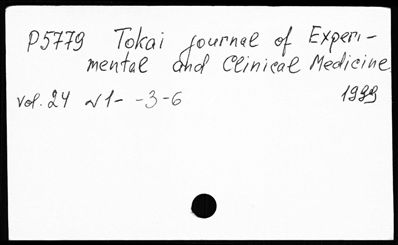 P5779 Tokai journal of Experi-
mental and Clinical Medicine
vol. 24 N1- -3-6 1999